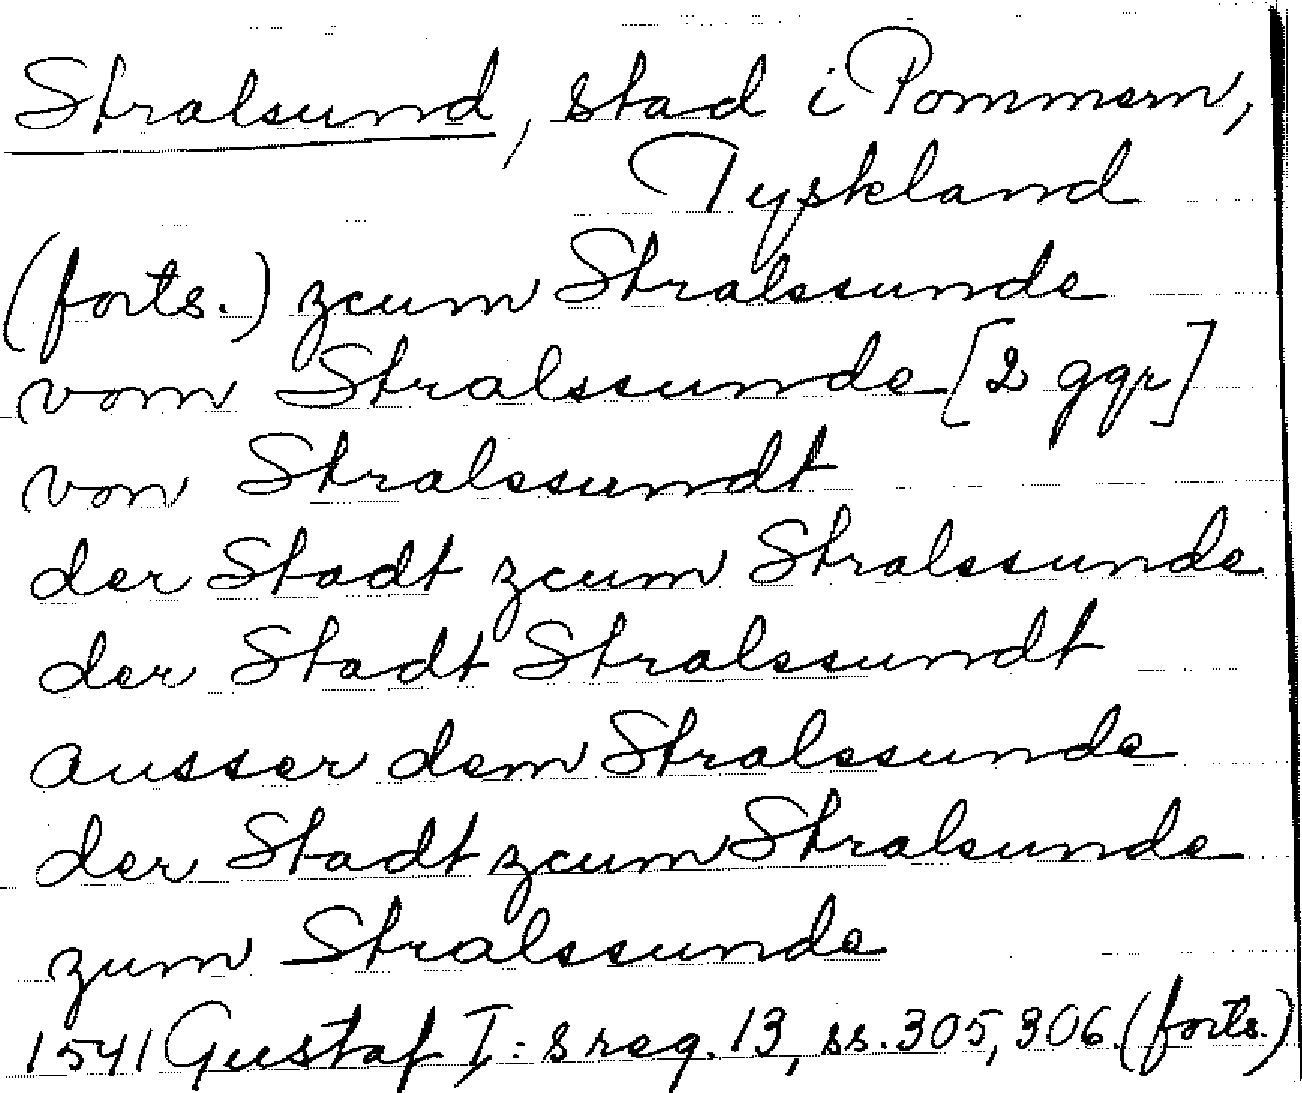 Stralsund, stad i Pommern,
Tyskland
(forts.) zcum Stralssunde
vom Stralssunde [2 ggr]
von Stralssundt
der Stadt zcum Stralssunde
der Stadt Stralssundt
ausser dem Stralssunde
der Stadt zcum Stralsunde
zum Stralssunde
1541 Gustaf I:s reg. 13, ss. 305, 306. (forts.)